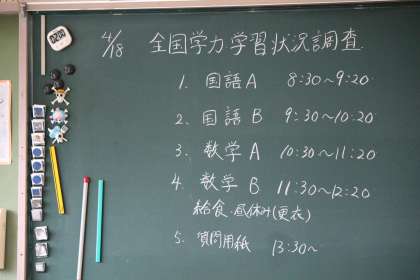 4/18 全国学力学習状況調査
1. 国語A 8:30～9:20
2. 国語B 9:30～10:20
3. 数学A 10:30～11:20
4. 数学B 11:30～12:20
給食・昼休み(更衣)
5. 質問用紙 13:30～